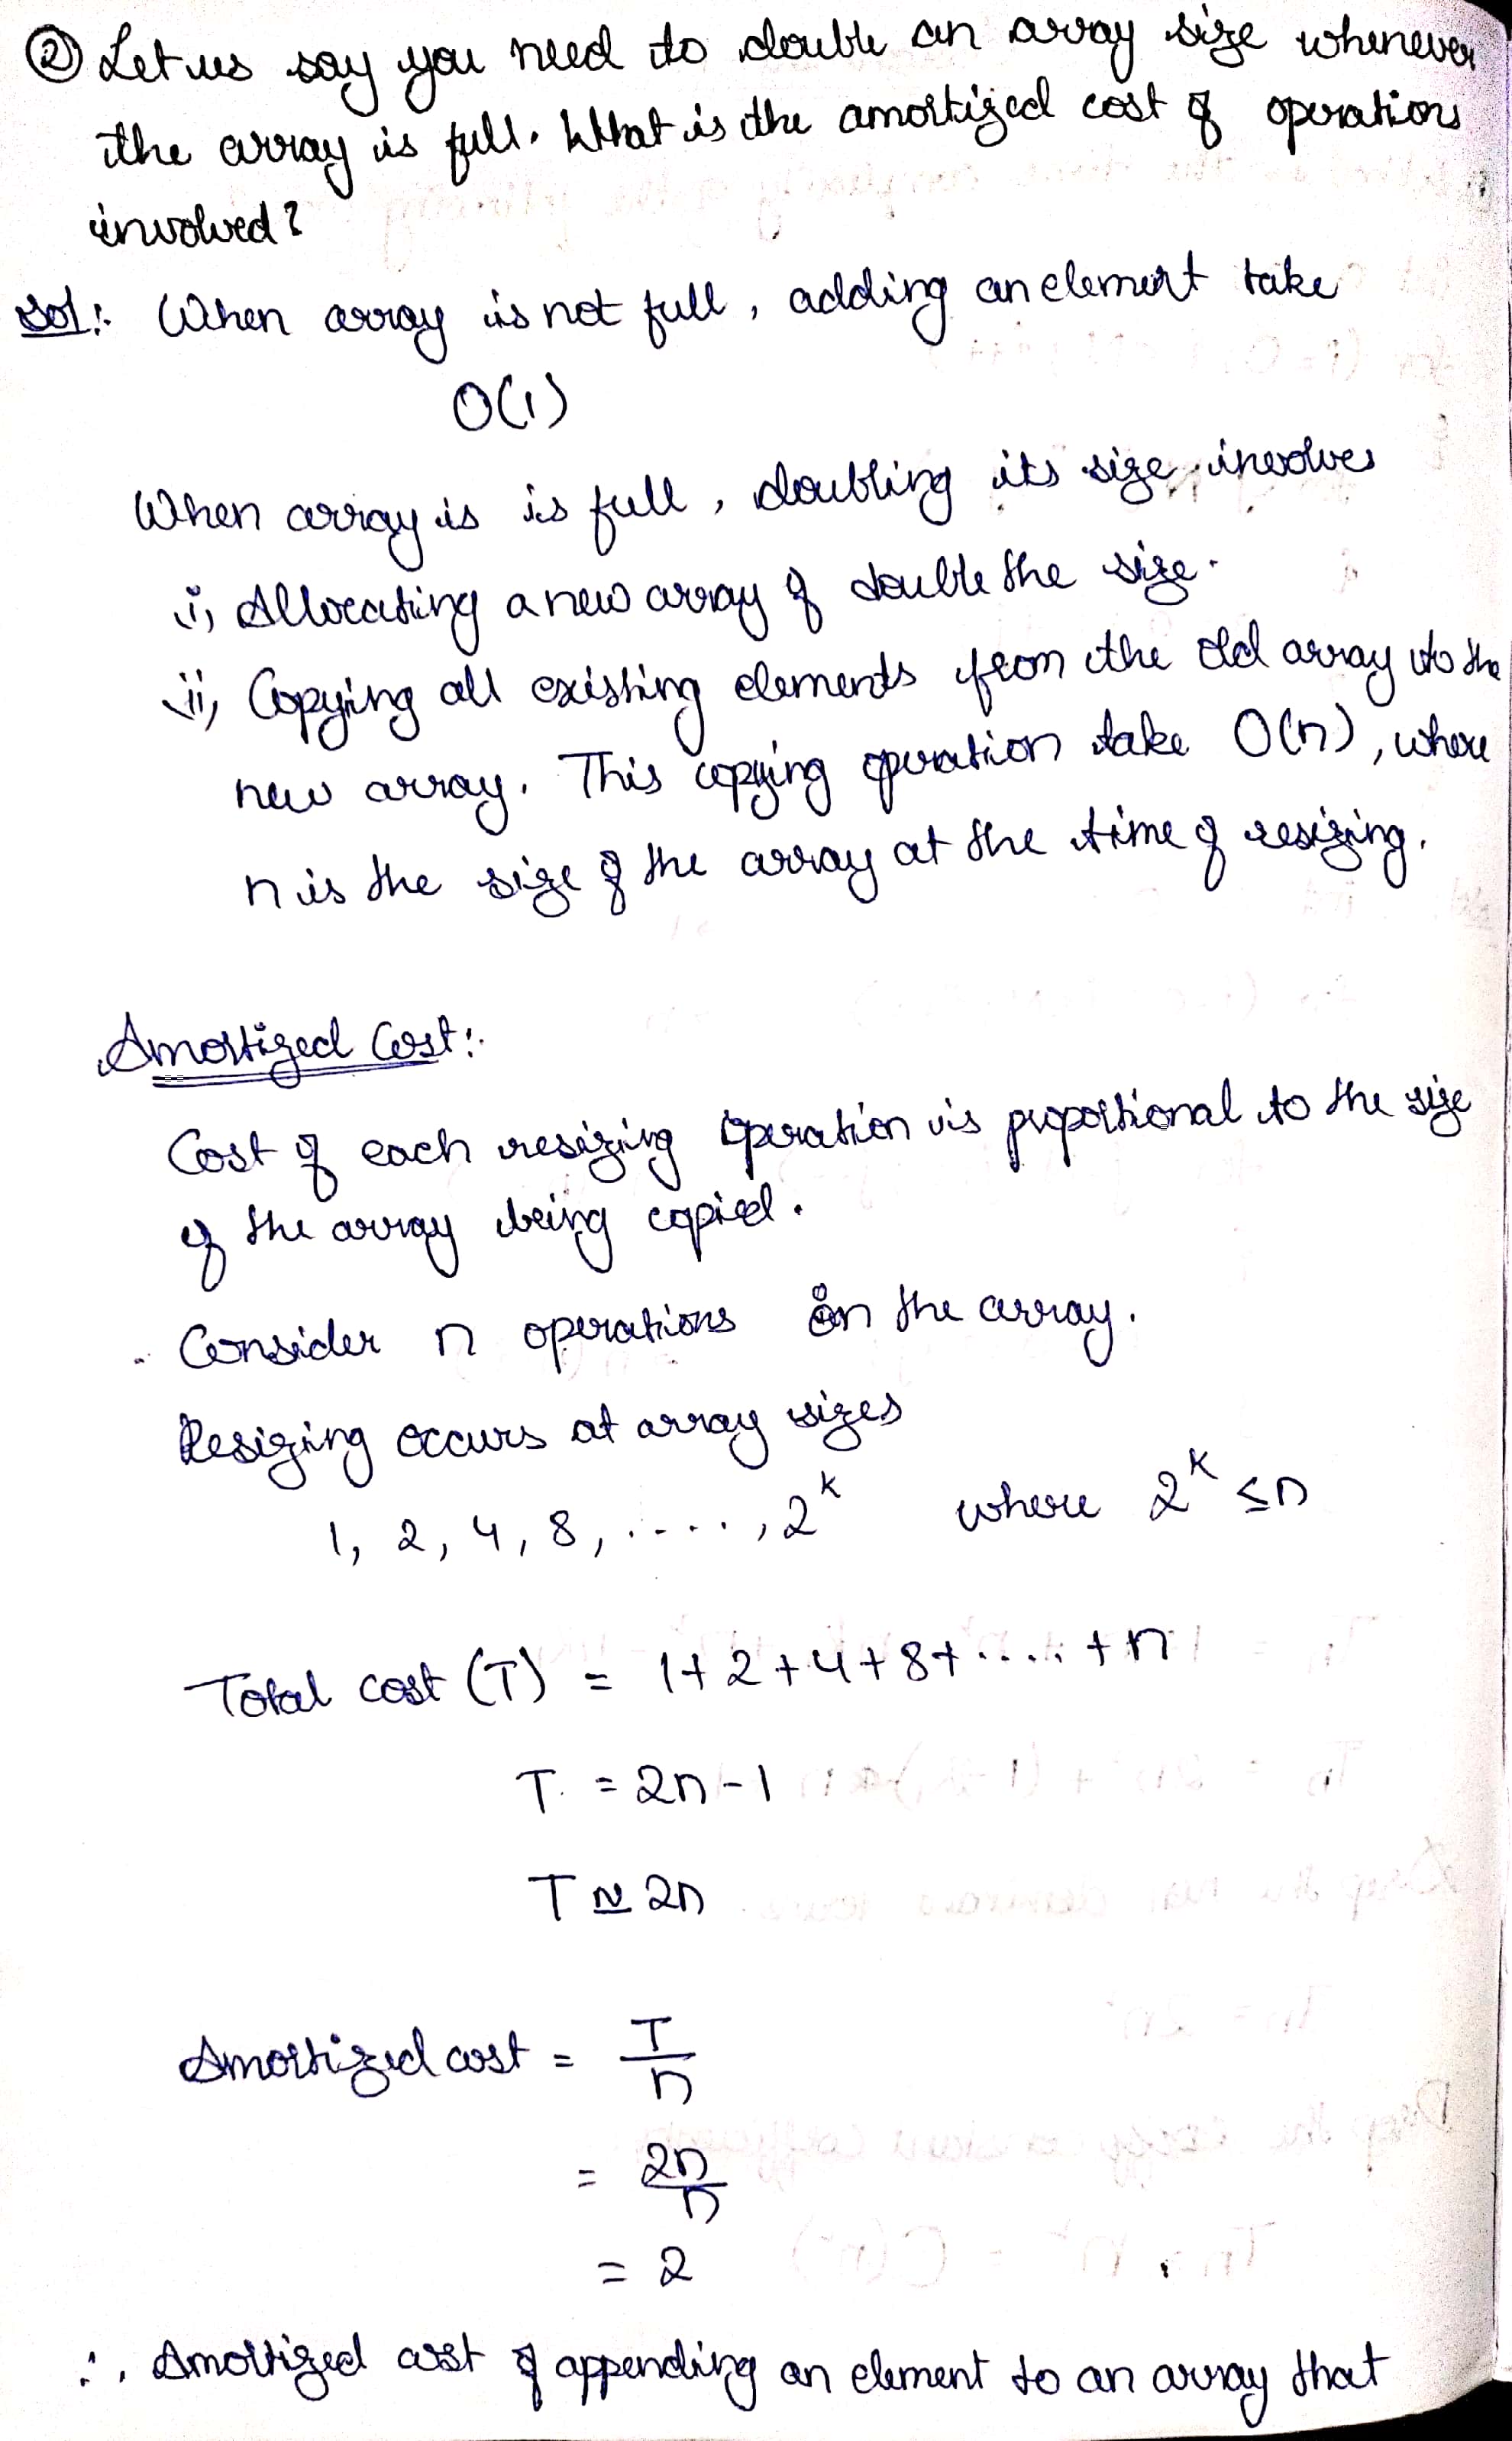 ② Let us say you need to double an array size whenever
the array is full. What is the amortized cost of operations
involved?
Sol:- When array is not full, adding an element take
O(1)
When array is is full, doubling its size involves
i, Allocating a new array of double the size.
ii, Copying all existing elements from the old array to the
new array. This copying operation take O(n), where
n is the size of the array at the time of resizing.
Amortized Cost:-
Cost of each resizing operation is proportional to the size
of the array being copied.
Consider n operations on the array.
Resizing occurs at array sizes
1, 2, 4, 8, ....., 2^k where 2^k ≤ n
Total cost (T) = 1+2+4+8+.....+n
T = 2n-1
T ≃ 2n
Amortized cost = T/n
= 2n/n
= 2
∴ Amortized cost of appending an element to an array that